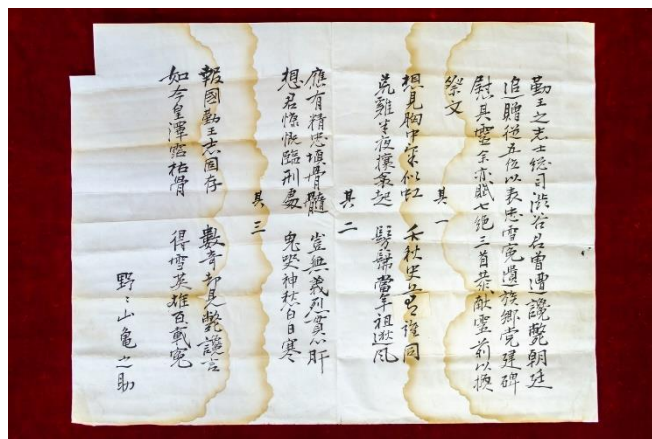 勤王之志士総司渋谷君曽遭讒斃朝廷
追贈従五位以表忠雪冤遺族郷党建碑
慰其霊余亦賦七絶三首恭献霊前以換
祭文
其一
想見胸中気似虹 千秋史上誰同
荒雞半夜攘衾起 髣髴當年祖逖風
其二
應有精忠填骨髓 豈無義烈貫心肝
想君慷慨臨刑處 鬼哭神愁白日寒
其三
報國勤王志固存 數奇却見斃讒言
如今皇澤霑枯骨 得雪英雄百載冤
野々山亀之助